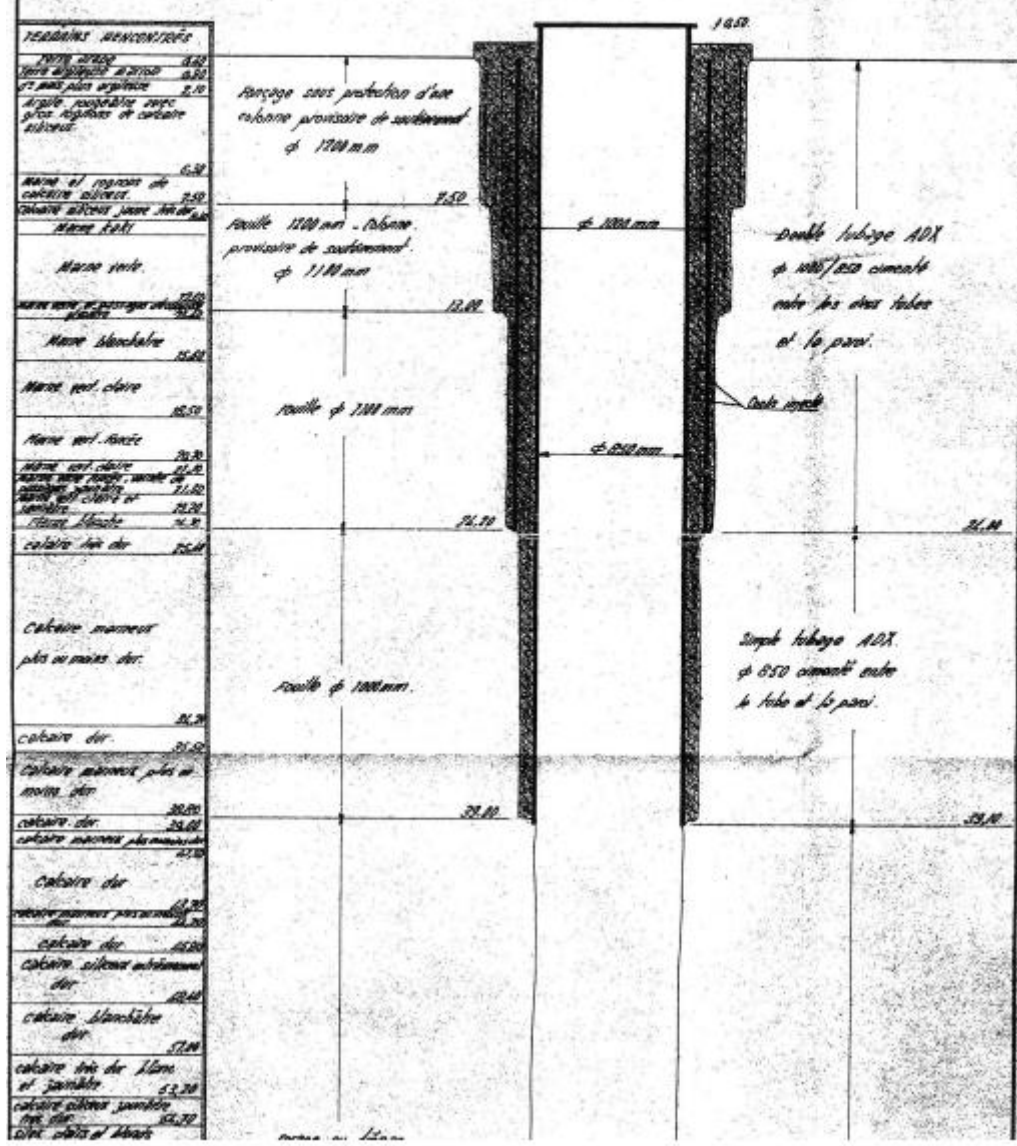 TERRAINS RENCONTRÉS
Terre arable
Terre argileuse marron 0.90
d° mais plus argileuse 2.10
Argile rougeâtre avec
gros rognons de calcaire
siliceux
6.30
Marne et rognons de
calcaire siliceux. 7.50
Calcaire siliceux jaune très dur
Marne kaki
Marne verte.
Marne verte et passages
Marne blanchatre
15.60
Marne vert. claire
18.50
Marne vert. foncée
Marne vert. claire
Marne vert claire et
blanche
calcaire très dur
Calcaire marneux
plus ou moins dur.
calcaire dur.
35.60
Calcaire marneux plus ou
moins dur
calcaire dur. 39.00
calcaire marneux plus ou moins dur
Calcaire dur
calcaire marneux plus ou moins
dur
calcaire dur
calcaire siliceux extrêmement
dur
calcaire blanchâtre
dur
57.00
calcaire très dur blanc
et jaunâtre 63,20
calcaire siliceux jaunâtre
très dur
silex clairs et blonds
Fonçage sous protection d'une
colonne provisoire de soutènement
φ 1200 mm
7.50
Fouille 1200 mm - Colonne
provisoire de soutènement
φ 1180 mm
13.00
Fouille φ 1100 mm
Fouille φ 1000 mm.
39.00
10.50
φ 1000 mm
φ 850 mm
Double tubage ADX
φ 1000/850 cimenté
entre les deux tubes
et la paroi.
Simple tubage ADX.
φ 850 cimenté entre
le tube et la paroi.